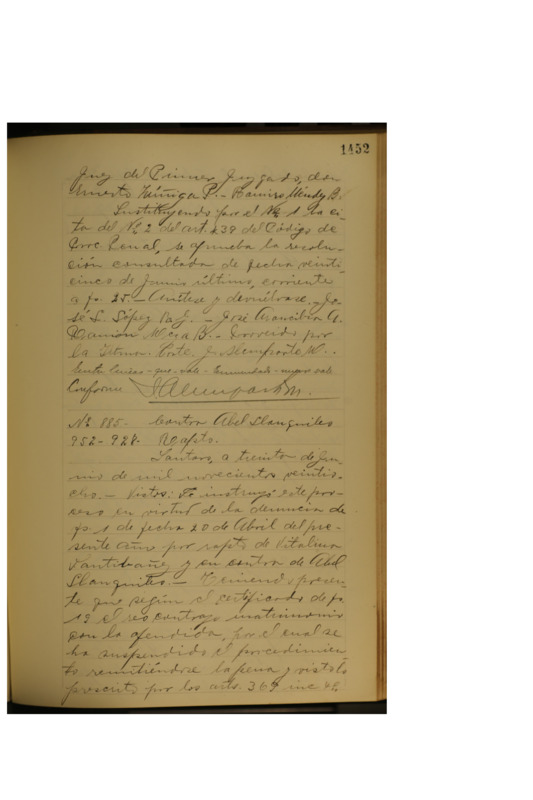 1452
Juez del Primer Juzgado, don
Ernesto Zúñiga P. - Ramiro Méndez B.
Sustituyendo por el Nº 1 la ci-
ta del Nº 2 del art. 438 del Código de
Proc. Penal, se aprueba la resolu-
ción consultada de fecha veinti-
cinco de Junio último, corriente
a fs. 25. - Anótese y devuélvase. - Jo-
sé S. López - José Arancibia A.
Ramón Mera B. - Proveido por
la Iltma. Corte. J. Alemparte M. -
Entre líneas - que - vale - Enmendado - vale
Conforme
Nº 885. Contra Abel Llanquileo
952-928. Rapto.
Lautaro, a treinta de Ju-
nio de mil novecientos veintio-
cho. - Vistos: Se instruyó este pro-
ceso en virtud de la denuncia de
fs. 1 de fecha 20 de Abril del pre-
sente año por rapto de Vitalina
Santibañez y en contra de Abel
Llanquileo. - Teniendo presen-
te que según el certificado de fs.
19 el reo contrajo matrimonio
con la ofendida, por el cual se
ha suspendido el procedimien-
to remitiéndose la pena y visto lo
prescrito por los arts. 369 inc 4º